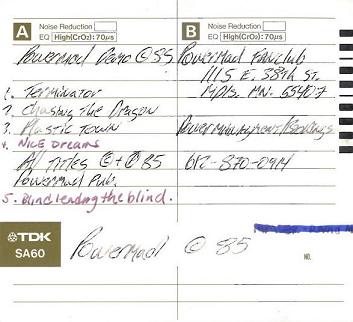 A Noise Reduction
EQ High(CrO2): 70µs
B Noise Reduction
EQ High(CrO2): 70µs
PowerMad Demo © 85
1. Terminator
2. Chasing The Dragon
3. Plastic Town
4. Nice Dreams
All Titles © + ℗ 85
PowerMad Pub.
5. Blind leading the blind.
PowerMad Fanclub
1115 E. 38th St.
Mpls. MN. 55407
612-870-0914
TDK
SA60
PowerMad © 85
NO.